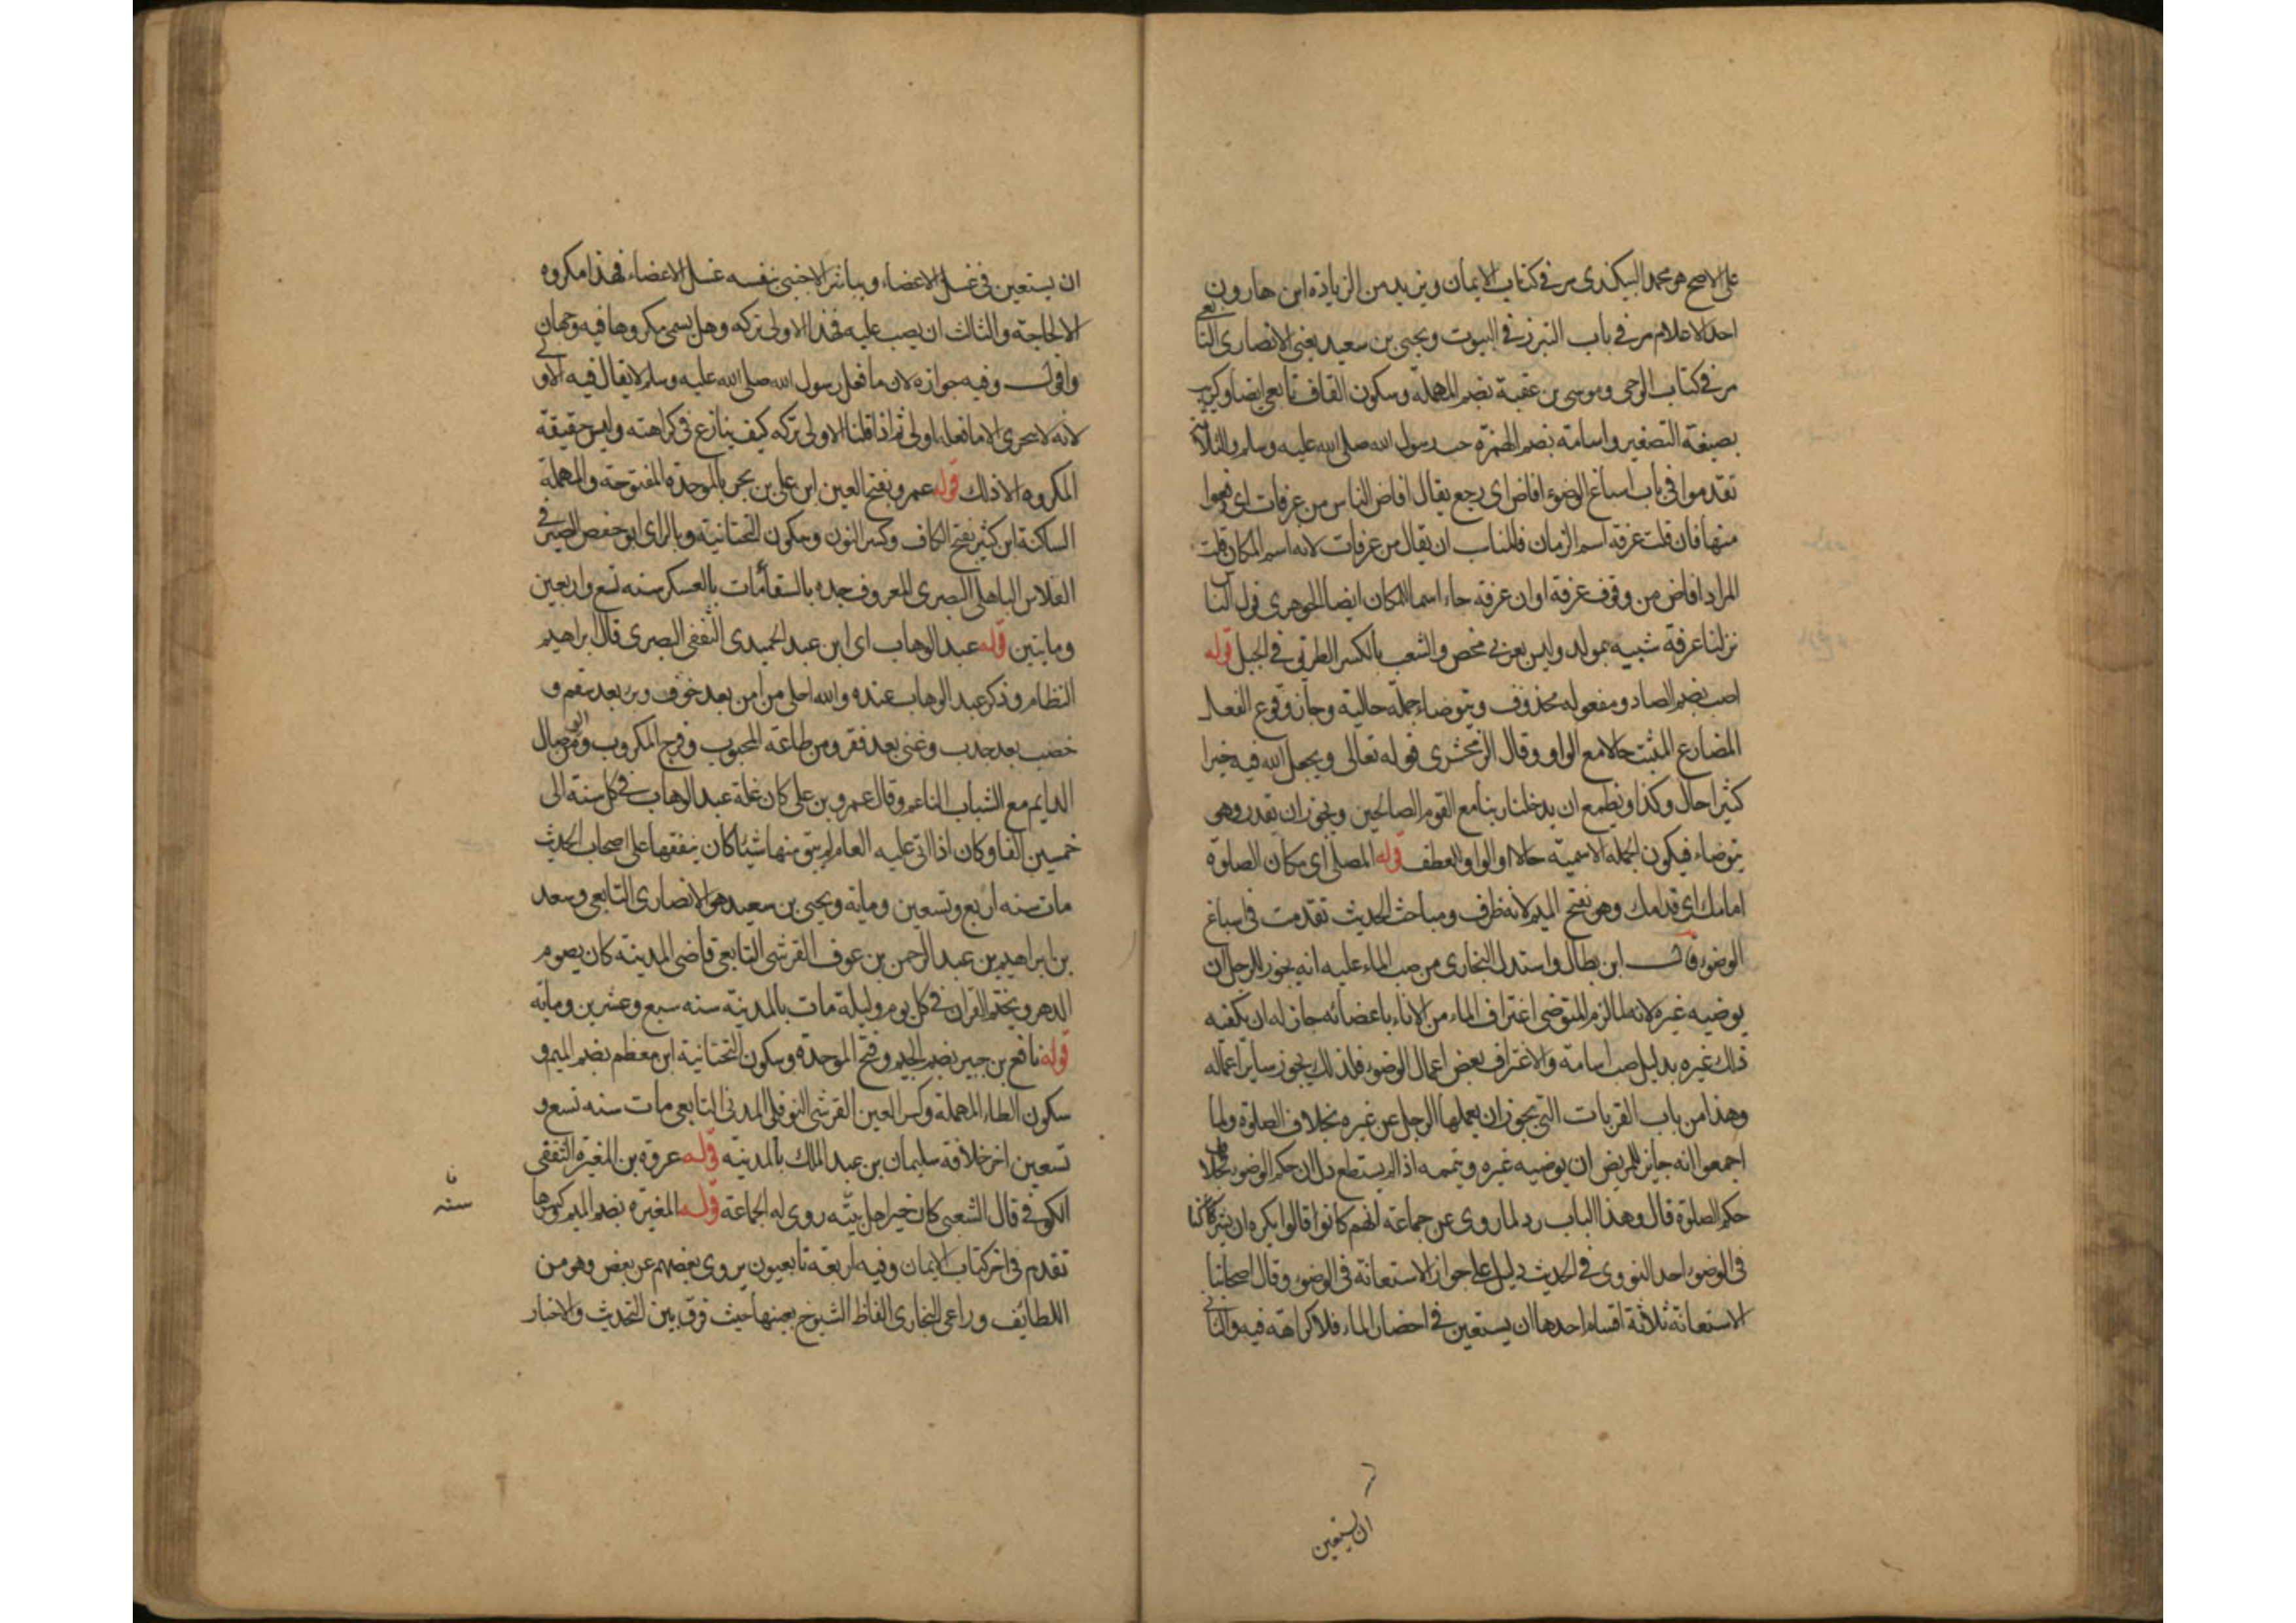 على الاصح هو محمد البيكندى مر فى كتاب الايمان ويزيد من الزيادة ابن هارون
احد الاعلام مر فى باب التبرز فى البيوت ويحيى بن سعيد يعنى الانصارى التابعى
مر فى كتاب الوحى وموسى بن عقبة بضم المهملة وسكون القاف تابعى ايضا وكريب
بصيغة التصغير واسامة بضم الهمزة حب رسول الله صلى الله عليه وسلم والثلاثة
تقدموا فى باب اسباغ الوضوء افاض اى رجع يقال افاض الناس من عرفات اى دفعوا
منها فان قلت عرفة اسم الزمان فالمناسب ان يقال من عرفات لانه اسم المكان قلت
المراد افاض من وقوف عرفة او ان عرفة جاء اسما للمكان ايضا الجوهرى قول الناس
نزلنا عرفة شبيه بمولد وليس بعربى محض والشعب بالكسر الطريق فى الجبل قوله
اصب بضم الصاد ومفعوله محذوف ويتوضاء جملة حالية وجاز وقوع الفعل
المضارع المثبت حالا مع الواو وقال الزمخشرى قوله تعالى ويجعل الله فيه خيرا
كثيرا حال وكذا ونطمع ان يدخلنا ربنا مع القوم الصالحين ويجوز ان يقدر وهو
يتوضاء فيكون الجملة الاسمية حالا او الواو للعطف قوله المصلى اى مكان الصلوة
امامك اى قدامك وهو بفتح الميم لانه ظرف ومباحث الحديث تقدمت فى اسباغ
الوضوء قال ابن بطال واستدل البخارى من صب الماء عليه انه يجوز للرجل ان
يوضيه غيره لانه لما لزم المتوضى اغتراف الماء من الاناء باعضائه جاز له ان يكفيه
ذلك غيره بدليل صب اسامة والاغتراف بعض اعمال الوضوء فلذلك يجوز ساير اعماله
وهذا من باب القربات التى يجوز ان يعملها الرجل عن غيره بخلاف الصلوة ولما
اجمعوا انه جايز للمريض ان يوضيه غيره ويتممه اذا لم يستطع دل ان حكم الوضوء بخلاف
حكم الصلوة قال وهذا الباب رد لما روى عن جماعة انهم كانوا قالوا يكره ان يشركنا
فى الوضوء احد النووى فى الحديث دليل على جواز الاستعانة فى الوضوء وقال اصحابنا
الاستعانة ثلاثة اقسام احدها ان يستعين فى احضار الماء فلا كراهة فيه والثانى
ان يستعين
ان يستعين فى غسل الاعضاء ويباشر الاجنبى بنفسه غسل الاعضاء فهذا مكروه
الا لحاجة والثالث ان يصب عليه فهذا الاولى تركه وهل يسمى مكروها فيه وجهان
واقول وفيه جوازه لان ما فعل رسول الله صلى الله عليه وسلم لا يقال فيه الاولى
لانه لا يتحرى الا ما فعله اولى ثم اذا قلنا الاولى تركه كيف ينازع فى كراهته وليس حقيقة
المكروه الا ذلك قوله عمرو بفتح العين ابن على بن بحر بالموحدة المفتوحة والمهملة
الساكنة ابن كثير بفتح الكاف وكسر النون وسكون التحتانية وبالزاى ابو حفص الصيرفى
الفلاس الباهلى البصرى المعروف جده بالسقا مات بالعسكر سنه تسع واربعين
ومايتين قوله عبد الوهاب اى ابن عبد الحميدى الثقفى البصرى قال ابراهيم
النظام وذكر عبد الوهاب عنده والله احلى من امن بعد خوف وبرء بعد سقم و
خصب بعد جدب وغنى بعد فقر ومن طاعة المحبوب وفرج المكروب والوصال
الدايم مع الشباب الناعم وقال عمرو بن على كان غلة عبد الوهاب فى كل سنة الى
خمسين الفا وكان اذا اتى عليه العام لم يبق منها شيئا كان ينفقها على اصحاب الحديث
مات سنه اربع وتسعين وماية ويحيى بن سعيد هو الانصارى التابعى وسعد
بن ابراهيم بن عبد الرحمن بن عوف القرشى التابعى قاضى المدينة كان يصوم
الدهر ويختم القران فى كل يوم وليلة مات بالمدينة سنه سبع وعشرين وماية
قوله نافع بن جبير بضم الجيم وفتح الموحدة وسكون التحتانية ابن معظم بضم الميم و
سكون الطاء المهملة وكسر العين القرشى النوفلى المدنى التابعى مات سنه تسع و
تسعين اخر خلافة سليمان بن عبد الملك بالمدينة قوله عروة بن المغيرة الثقفى
الكوفى قال الشعبى كان خير اهل بيته روى له الجماعة قوله المغيرة بضم الميم وكسرها
تقدم فى اخر كتاب الايمان وفيه اربعة تابعيون يروى بعضهم عن بعض وهو من
اللطايف وراعى البخارى الفاظ الشيوخ بعينها حيث فرق بين التحديث والاخبار